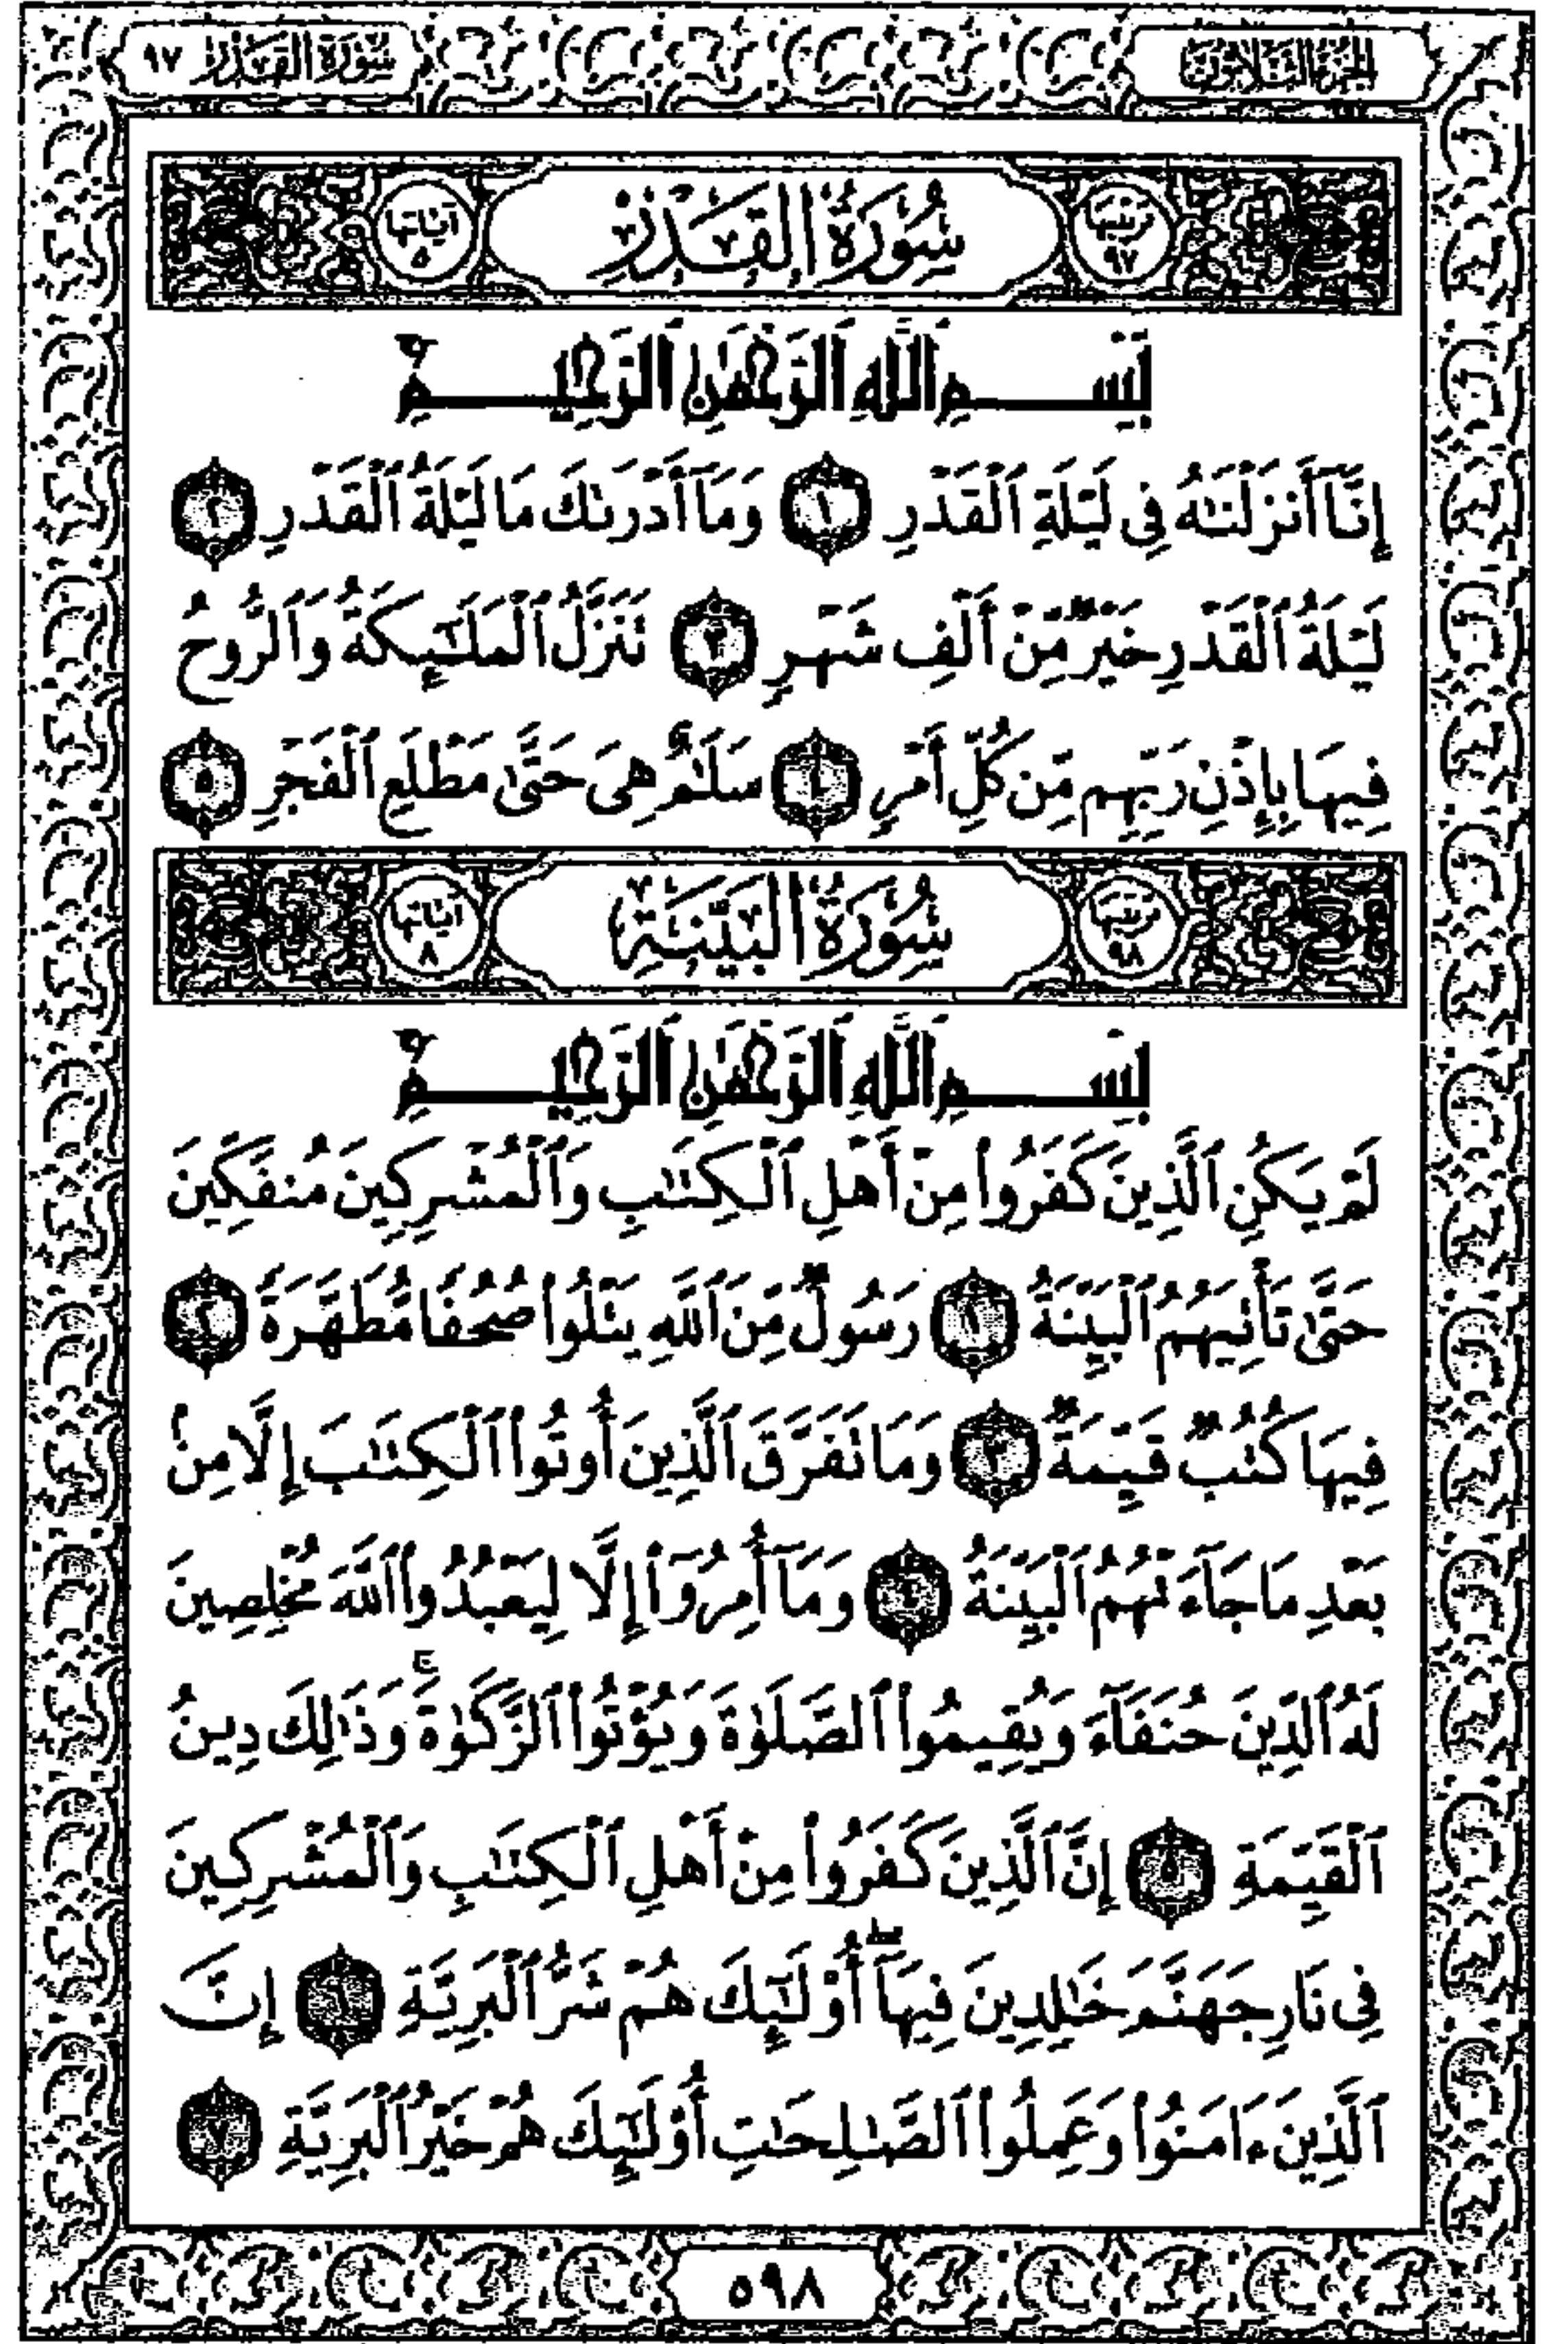 الجزء الثلاثون
سورة القدر ٩٧
ترتيبها ٩٧ سُورَةُ القَدْرِ آياتها ٥
بِسْمِ ٱللَّهِ ٱلرَّحْمَٰنِ ٱلرَّحِيمِ
إِنَّآ أَنزَلْنَٰهُ فِى لَيْلَةِ ٱلْقَدْرِ ١ وَمَآ أَدْرَىٰكَ مَا لَيْلَةُ ٱلْقَدْرِ ٢
لَيْلَةُ ٱلْقَدْرِ خَيْرٌ مِّنْ أَلْفِ شَهْرٍ ٣ تَنَزَّلُ ٱلْمَلَٰٓئِكَةُ وَٱلرُّوحُ
فِيهَا بِإِذْنِ رَبِّهِم مِّن كُلِّ أَمْرٍ ٤ سَلَٰمٌ هِىَ حَتَّىٰ مَطْلَعِ ٱلْفَجْرِ ٥
ترتيبها ٩٨ سُورَةُ البَيِّنَةِ آياتها ٨
بِسْمِ ٱللَّهِ ٱلرَّحْمَٰنِ ٱلرَّحِيمِ
لَمْ يَكُنِ ٱلَّذِينَ كَفَرُوا۟ مِنْ أَهْلِ ٱلْكِتَٰبِ وَٱلْمُشْرِكِينَ مُنفَكِّينَ
حَتَّىٰ تَأْتِيَهُمُ ٱلْبَيِّنَةُ ١ رَسُولٌ مِّنَ ٱللَّهِ يَتْلُوا۟ صُحُفًا مُّطَهَّرَةً ٢
فِيهَا كُتُبٌ قَيِّمَةٌ ٣ وَمَا تَفَرَّقَ ٱلَّذِينَ أُوتُوا۟ ٱلْكِتَٰبَ إِلَّا مِنۢ
بَعْدِ مَا جَآءَتْهُمُ ٱلْبَيِّنَةُ ٤ وَمَآ أُمِرُوٓا۟ إِلَّا لِيَعْبُدُوا۟ ٱللَّهَ مُخْلِصِينَ
لَهُ ٱلدِّينَ حُنَفَآءَ وَيُقِيمُوا۟ ٱلصَّلَوٰةَ وَيُؤْتُوا۟ ٱلزَّكَوٰةَ ۚ وَذَٰلِكَ دِينُ
ٱلْقَيِّمَةِ ٥ إِنَّ ٱلَّذِينَ كَفَرُوا۟ مِنْ أَهْلِ ٱلْكِتَٰبِ وَٱلْمُشْرِكِينَ
فِى نَارِ جَهَنَّمَ خَٰلِدِينَ فِيهَآ ۚ أُو۟لَٰٓئِكَ هُمْ شَرُّ ٱلْبَرِيَّةِ ٦ إِنَّ
ٱلَّذِينَ ءَامَنُوا۟ وَعَمِلُوا۟ ٱلصَّٰلِحَٰتِ أُو۟لَٰٓئِكَ هُمْ خَيْرُ ٱلْبَرِيَّةِ ٧
٥٩٨